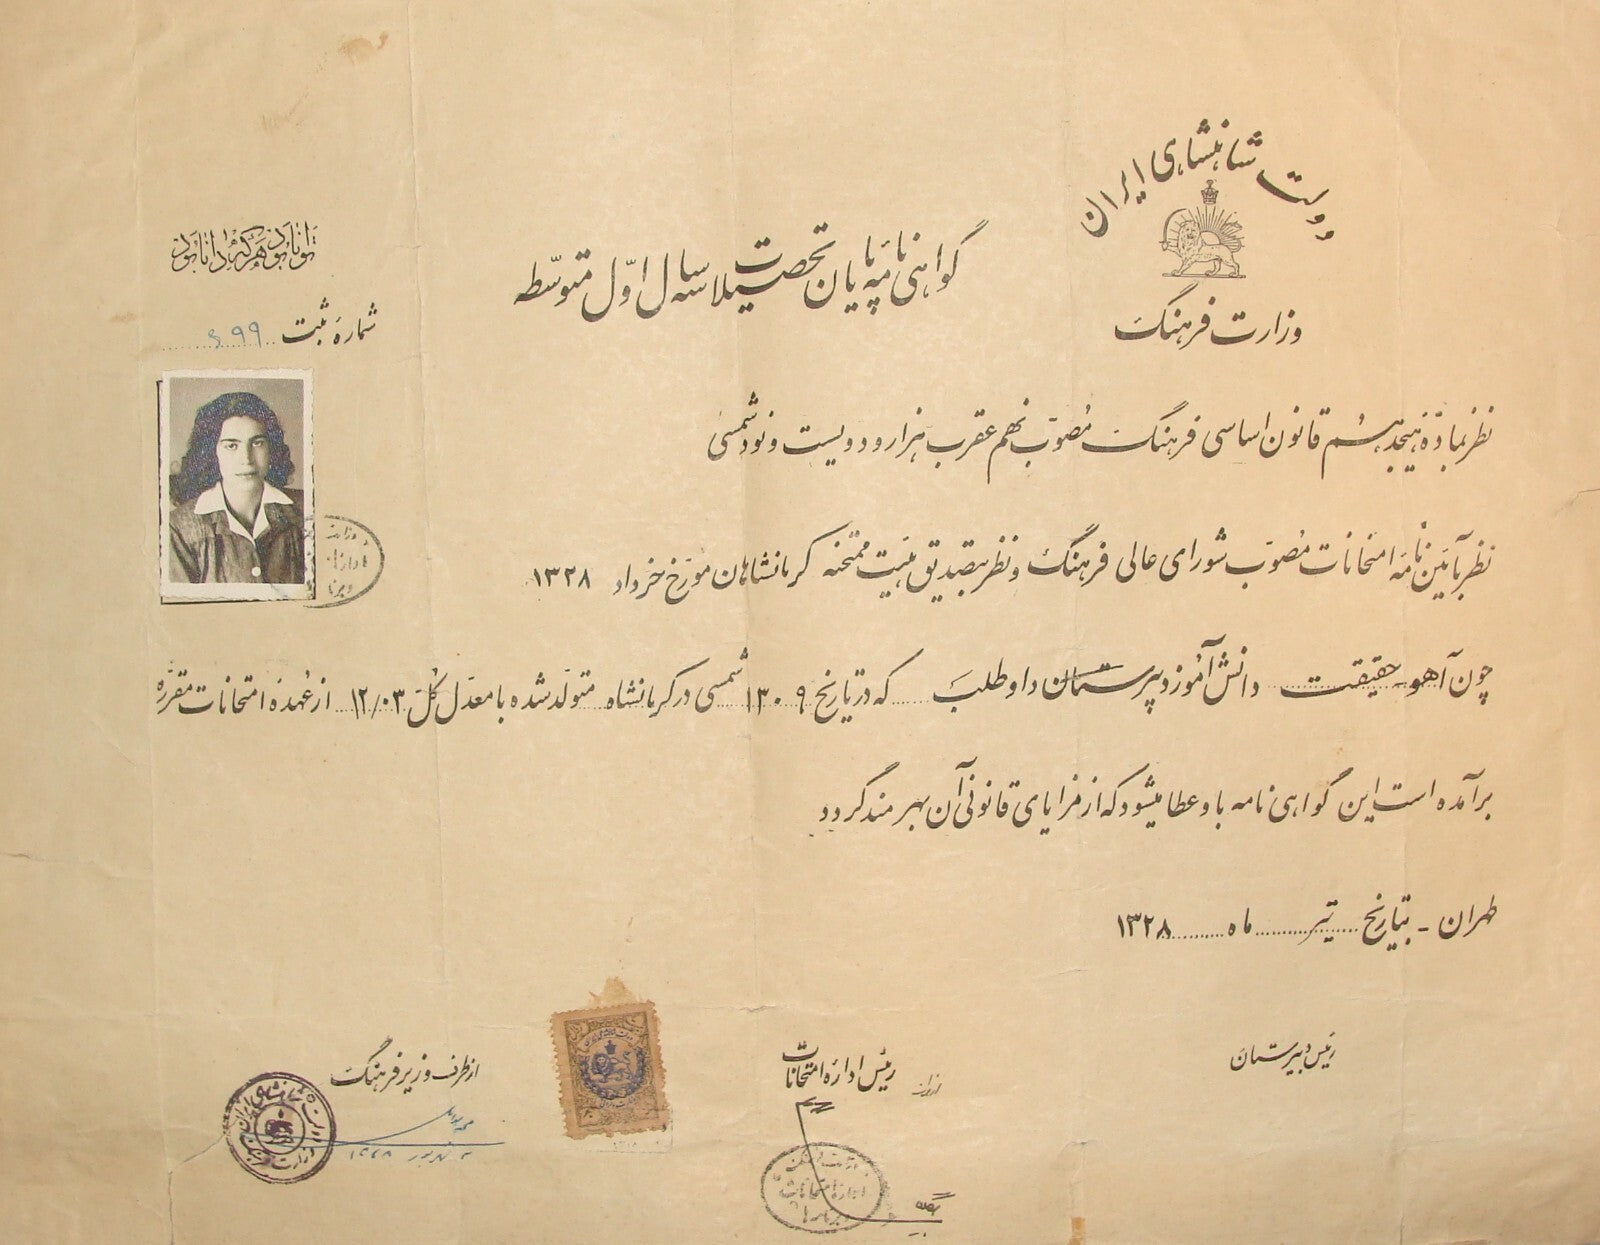 دولت شاهنشاهی ایران
وزارت فرهنگ
گواهی نامه پایان تحصیلات سه سال اوّل متوسّطه
توانا بود هر که دانا بود
شمارهٔ ثبت
نظر بمادّهٔ هیجدهم قانون اساسی فرهنگ مُصوّب نهم عقرب هزار و دویست و نود شمسی
نظر بآئین نامهٔ امتحانات مُصوّب شورای عالی فرهنگ و نظر بتصدیق هیئت ممتحنه کرمانشاهان مورّخ خرداد ۱۳۲۸
چون آهو حقیقت دانش آموز دبیرستان داوطلب که در تاریخ ۱۳۰۹ شمسی در کرمانشاه متولّد شده با معدّل کُلّ ۱۲/۰۳ از عُهدهٔ امتحانات مقرّره
برآمده است این گواهی نامه باو عطا میشود که از مزایای قانونی آن بهره مند گردد
طهران - بتاریخ تیر ماه ۱۳۲۸
رئیس دبیرستان
رئیس ادارهٔ امتحانات
از طرف وزیر فرهنگ